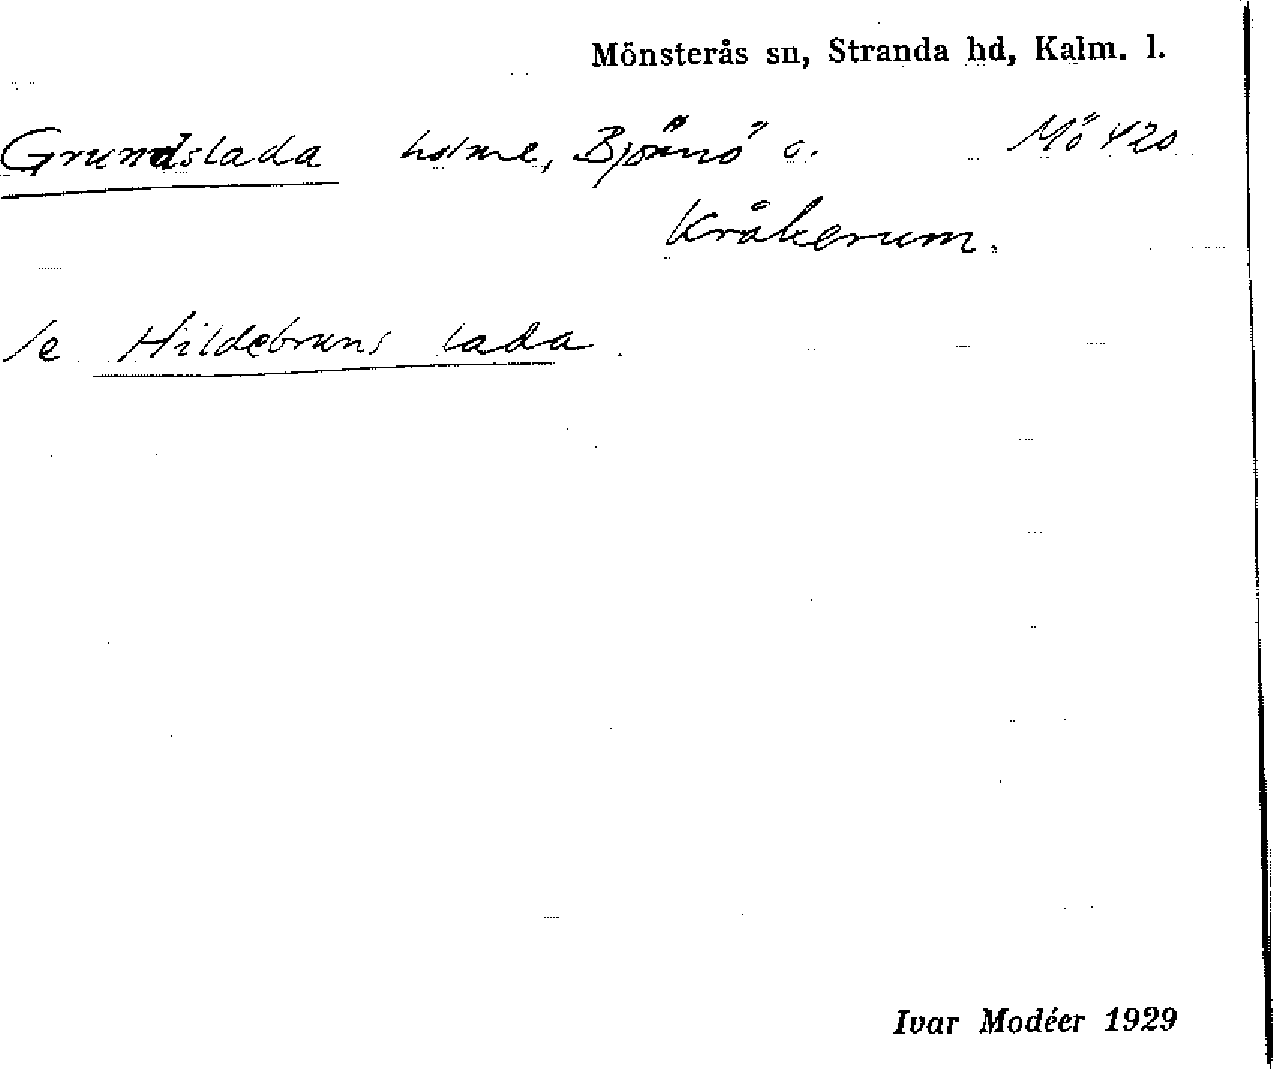 Mönsterås sn, Stranda hd, Kalm. l.
Grundslada holme, Björnö o. Mö 420
Kråkerum.
se Hildebruns lada.
Ivar Modéer 1929